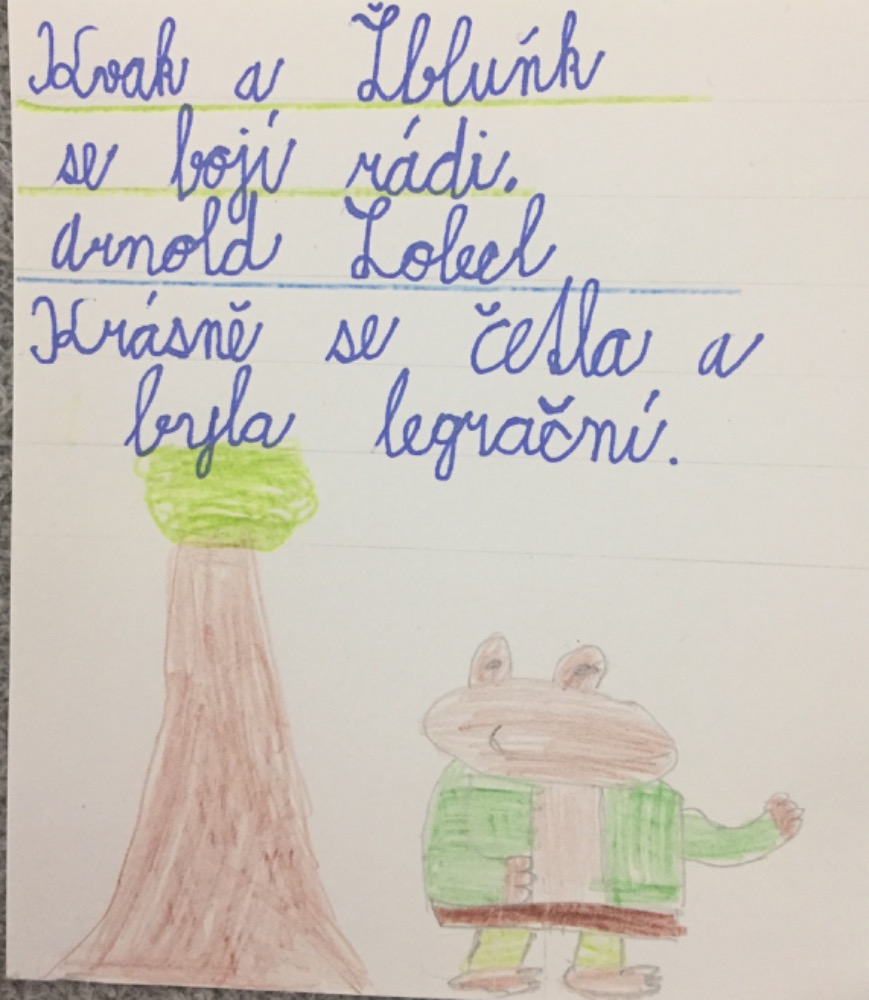 Kvak a Žbluňk
se bojí rádi.
Arnold Lobel
Krásně se četla a
byla legrační.